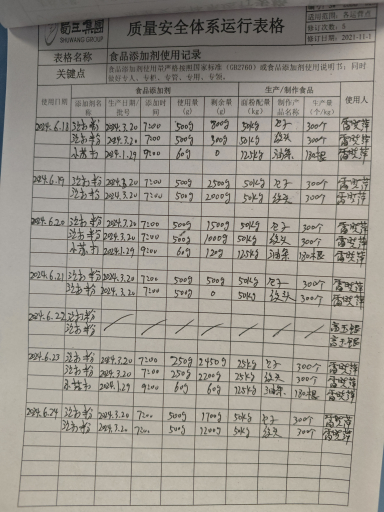 蜀王集團
SHUWANG GROUP
质量安全体系运行表格
适用范围:各运营点
修订次数:5
修订日期:2021-11-1
表格名称 食品添加剂使用记录
关键点 食品添加剂使用量严格按照国家标准(GB2760)或食品添加剂使用说明书;同时做好专人、专柜、专管、专用、专领。
食品添加剂 生产/制作食品
使用日期 添加剂名称 生产日期/批号 添加时间 使用量(g) 剩余量(g) 面粉配量(kg) 制作产品名称 生产量(个/kg) 使用人
2024.6.18 泡打粉 2024.3.20 7:00 500g 800g 50kg 包子 300个
泡打粉 2024.3.20 7:00 500g 300g 50kg 馒头 300个
2024.1.29 9:00 60g 0 12.5kg 油条 130根
2024.6.19 泡打粉 2024.3.20 7:00 500g 2500g 50kg 包子 300个
泡打粉 2024.3.20 7:00 500g 2000g 50kg 馒头 300个
2024.6.20 泡打粉 2024.3.20 7:00 500g 1500g 50kg 包子 300个
泡打粉 2024.3.20 7:00 500g 1000g 50kg 馒头 300个
2024.1.29 9:00 60g 120g 12.5kg 油条 130根
2024.6.21 泡打粉 2024.3.20 7:00 500g 500g 50kg 包子 300个
泡打粉 2024.3.20 7:00 500g 0 50kg 馒头 300个
2024.6.22 泡打粉
泡打粉
2024.6.23 泡打粉 2024.3.20 7:00 250g 2450g 25kg 包子 300个
泡打粉 2024.3.20 7:00 250g 2200g 25kg 馒头 300个
2024.1.29 9:00 60g 60g 12.5kg 油条 130根
2024.6.24 泡打粉 2024.3.20 7:00 500g 1700g 50kg 包子 300个
泡打粉 2024.3.20 7:00 500g 1200g 50kg 馒头 300个